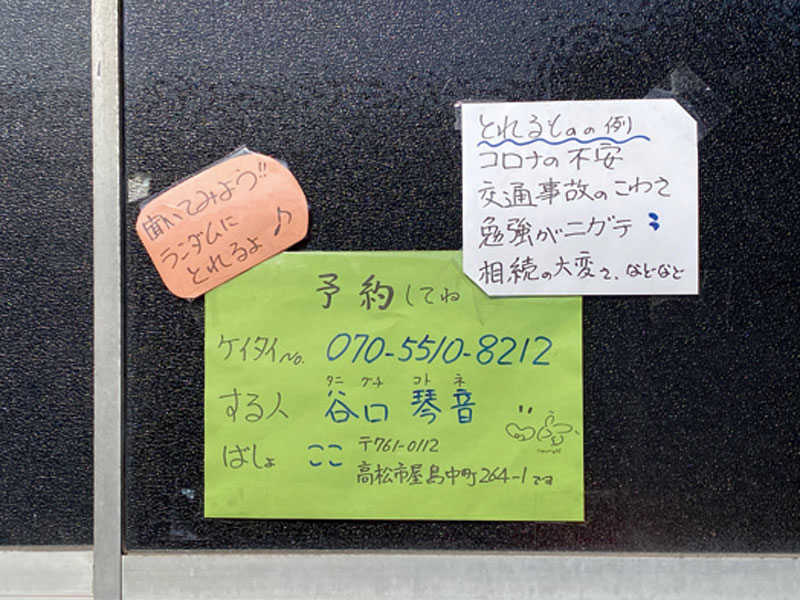 聞いてみよう!!
ランダムに
とれるよ♪
とれるものの例
コロナの不安
交通事故のこわさ
勉強がニガテ
相続の大変さ、などなど
予約してね
ケイタイNo. 070-5510-8212
タニ グチ コト ネ
する人 谷口 琴音
ばしょ ここ 〒761-0112
高松市屋島中町264-1です